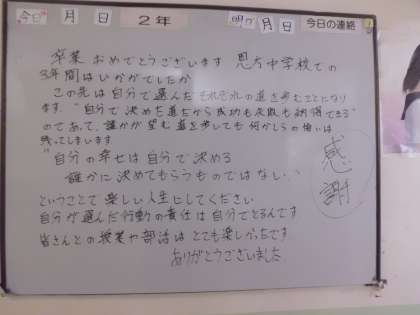 今日 月 日 2年 明日 月 日 今日の連絡
卒業 おめでとうございます 恩方中学校での
3年間はいかがでしたか
この先は自分で選んだそれぞれの道を歩むことになり
ます "自分で決めた道だから成功も失敗も納得できる"
のであって、誰かが望む道を歩しても何かしらの悔いは
残ってしまいます
"自分の幸せは自分で決める
誰かに決めてもらうものではない"
ということで楽しい人生にしてください
自分が選んだ行動の責任は自分でとるんです
皆さんとの授業や部活はとても楽しかったです
ありがとうございました
感謝